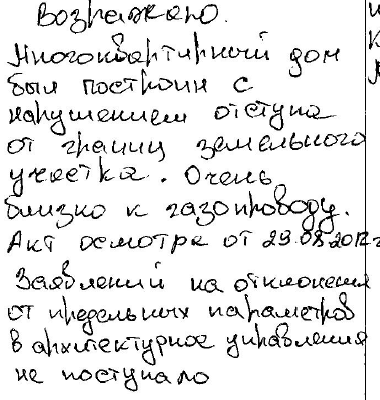 Возражаю.
Многоквартирный дом
был построин с
нарушением отступа
от границ земельного
участка. Очень
близко к газопроводу.
Акт осмотра от 29.08.2012 г
Заявлений на отклонения
от предельных параметров
в архитектурное управления
не поступало